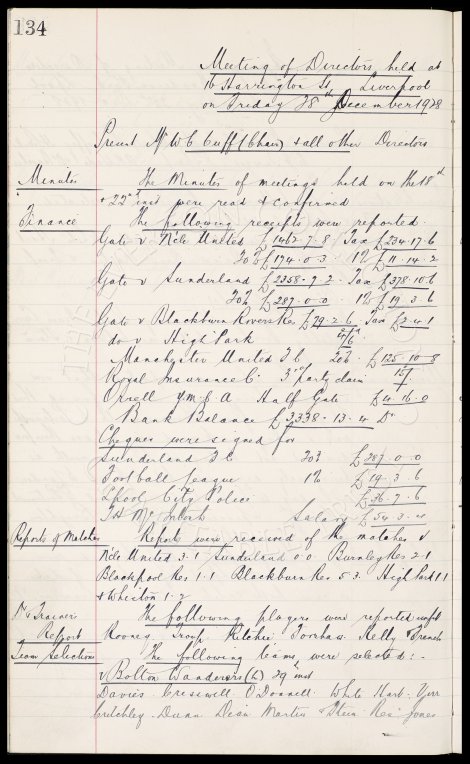 134
Meeting of Directors held at
16 Harrington St, Liverpool
on Friday 28th December 1928
Present Mr W C Cuff (Chair) & all other Directors
Minutes The Minutes of meetings held on the 18th
& 22nd inst were read & confirmed
Finance The following receipts were reported.
Gate v N'cle United £1462.7.8 Tax £234.17.6
20% £174.0.3 1% £11.14.2
Gate v Sunderland £2358.9.2 Tax £378.10.6
20% £287.0.0 1% £19.3.6
Gate v Blackburn Rovers Res £79.2.6 Tax £2.4.1
do v High Park
Manchester United F C 20% £125.10.8
Royal Insurance Co 3rd party claim 15/-
Orrell Y.M.C.A Half Gate £4.16.0
Bank Balance £3338.13.4 Dr
Cheques were signed for
Sunderland F C 20% £287.0.0
Football League 1% £19.3.6
L'pool City Police £36.7.6
T H McIntosh Salary £54.3.4
Reports of Matches Reports were received of the matches v
N'cle United 3.1 Sunderland 0.0 Burnley Res 2.1
Blackpool Res 1.1 Blackburn Res 5.3 High Park 1.1
& Whiston 1.2
Dr & Trainers The following players were reported unfit
Report Rooney, Troup Ritchie Kelly French
Team Selection The following teams were selected:-
v Bolton Wanderers (L) 29th inst
Davies Cresswell O'Donnell White Hart
Critchley Dunn Dean Martin & Stein Res Jones